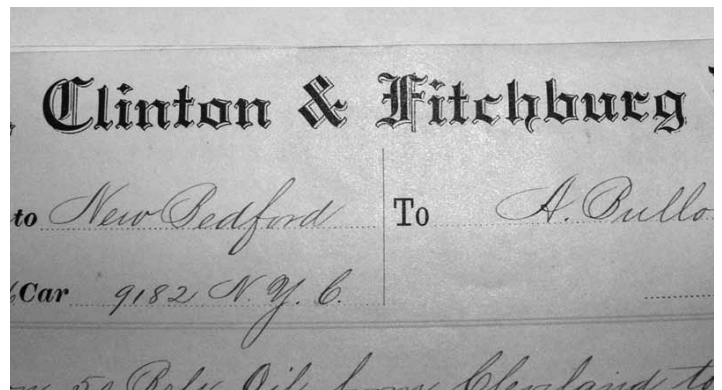 Clinton & Fitchburg
to New Bedford To A. Bullo
Car 9182 N. Y. C.
50 Bols Oil from Cleveland to